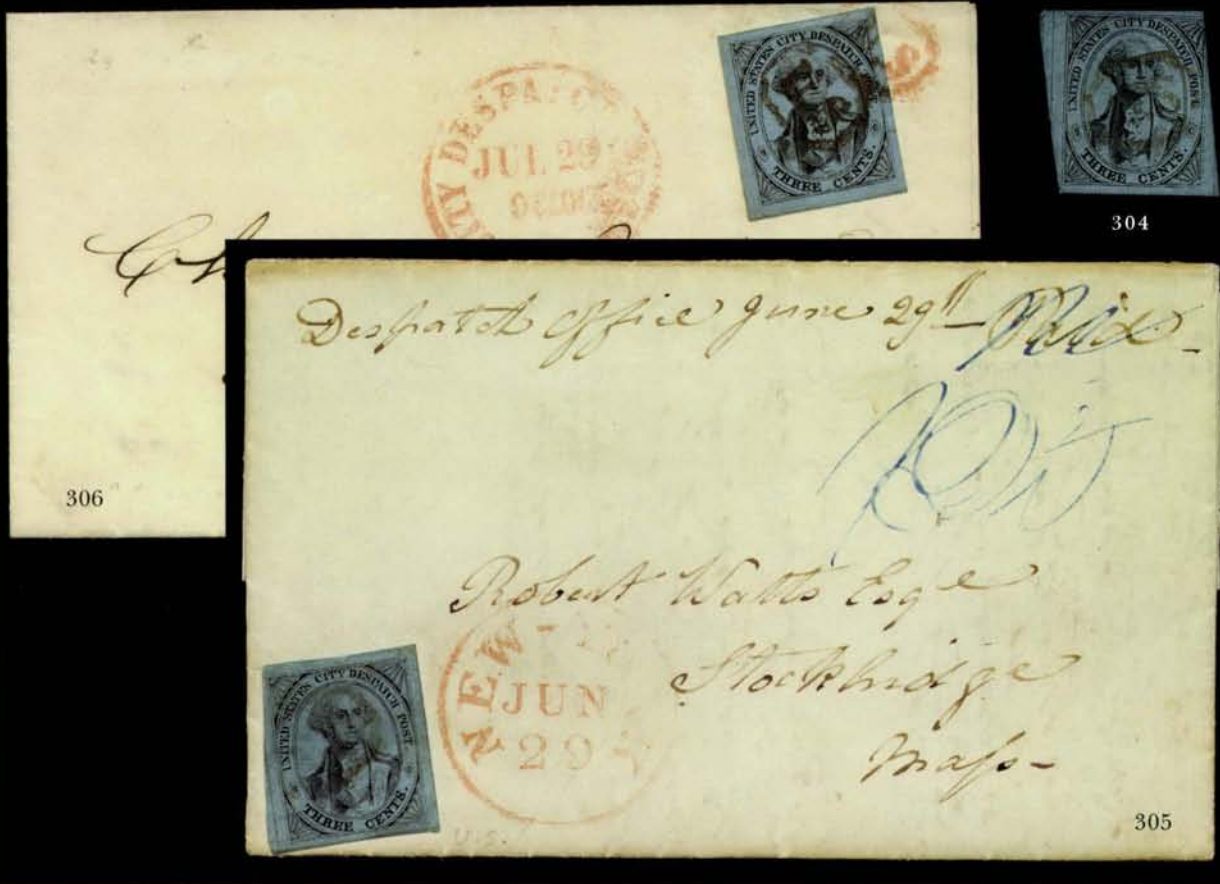 UNITED STATES CITY DESPATCH POST.
THREE CENTS.
CITY DESPATCH
JUL 29
UNITED STATES CITY DESPATCH POST.
THREE CENTS.
304
Ch
306
Despatch Office June 29th - Paid -
Robert Watts Esqe
Stockbridge
Mass -
NEW
JUN
29
UNITED STATES CITY DESPATCH POST.
THREE CENTS.
U.S.
305